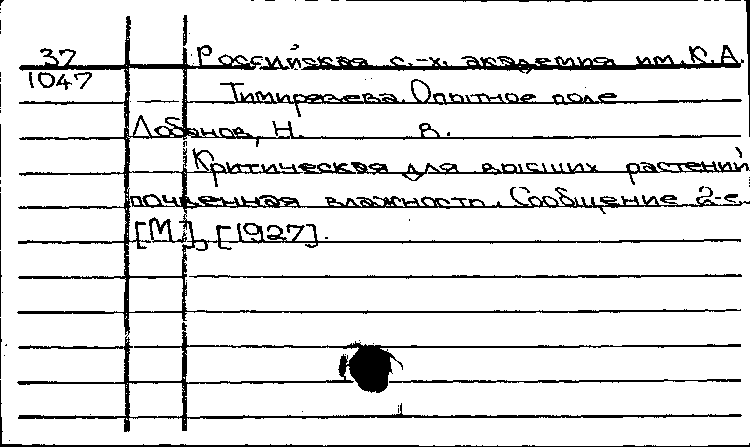 37 Российская с.-х. академия им. К.А.
1047 Тимирязева. Опытное поле
Лобанов, Н. В.
Критическая для высших растений
почвенная влажность. Сообщение 2-е.
[М.], [1927].